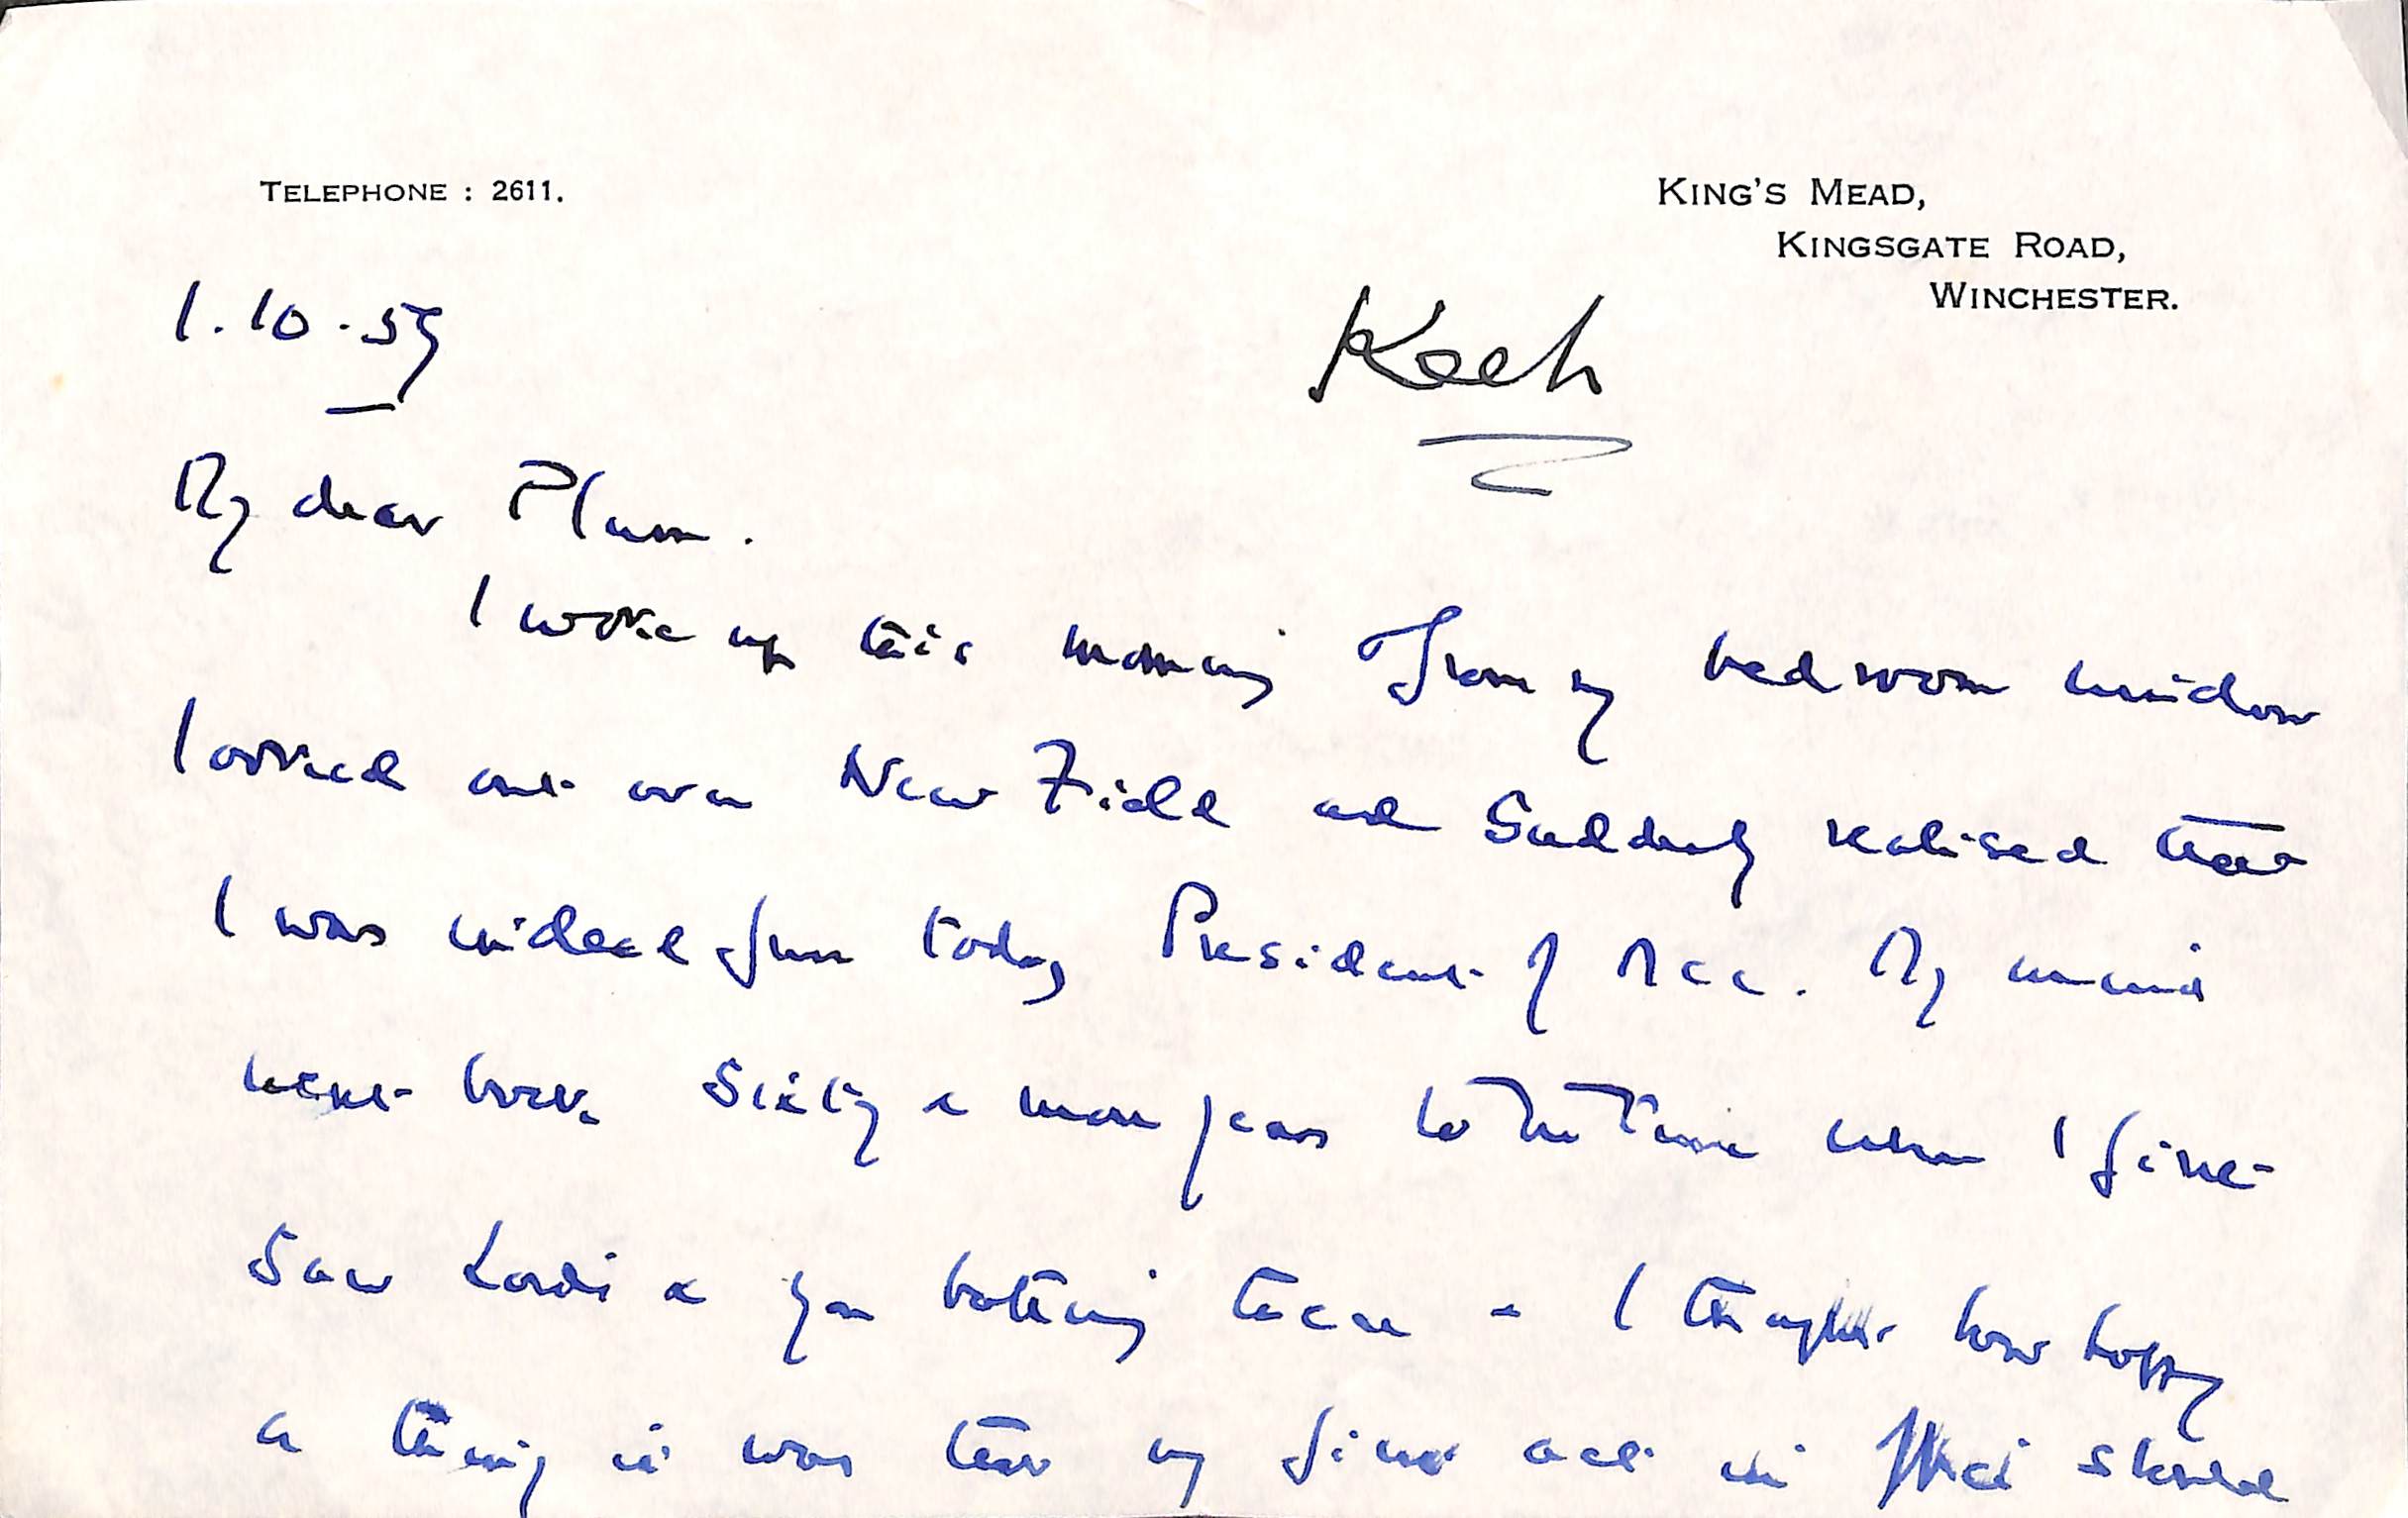 TELEPHONE : 2611.
KING'S MEAD,
KINGSGATE ROAD,
WINCHESTER.
1.10.57
Keep
My dear Plum.
I woke up this morning & from my bedroom window
looked out over New Field and suddenly realised that
I was indeed from today President of MCC. My mind
went back sixty & more years to the time when I first
saw Lords & you batting there & I thought how happy
a thing it was that my first act in office should